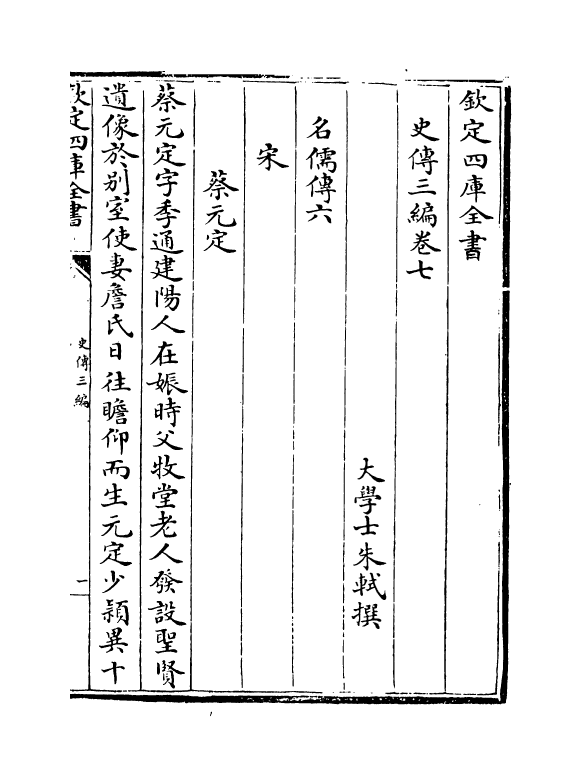 欽定四庫全書
史傳三編卷七
大學士朱軾撰
名儒傳六
宋
蔡元定
蔡元定字季通建陽人在娠時父牧堂老人發設聖賢
遺像於别室使妻詹氏日往瞻仰而生元定少頴異十
欽定四庫全書
史傳三編
一